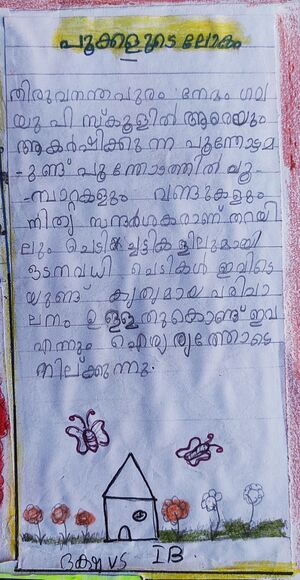 പൂക്കളുടെ ലോകം
തിരുവനന്തപുരം നേമം ഗവ
യു പി സ്കൂളിൽ ആരെയും
ആകർഷിക്കുന്ന പൂന്തോട്ടമ
-ുണ്ട് പൂന്തോട്ടത്തിൽ പൂ-
-മ്പാറ്റകളും വണ്ടുകളും
നിത്യ സന്ദർശകരാണ് തറയി
ലും ചെടിച്ചട്ടികളിലുമായി
ഒടനവധി ചെടികൾ ഇവിടെ
യുണ്ട് കൃത്യമായ പരിപാ
ലനം ഉള്ളതുകൊണ്ട് ഇവ
എന്നും ഐശ്വര്യത്തോടെ
നില്ക്കുന്നു.
ദക്ഷ V S 1B.